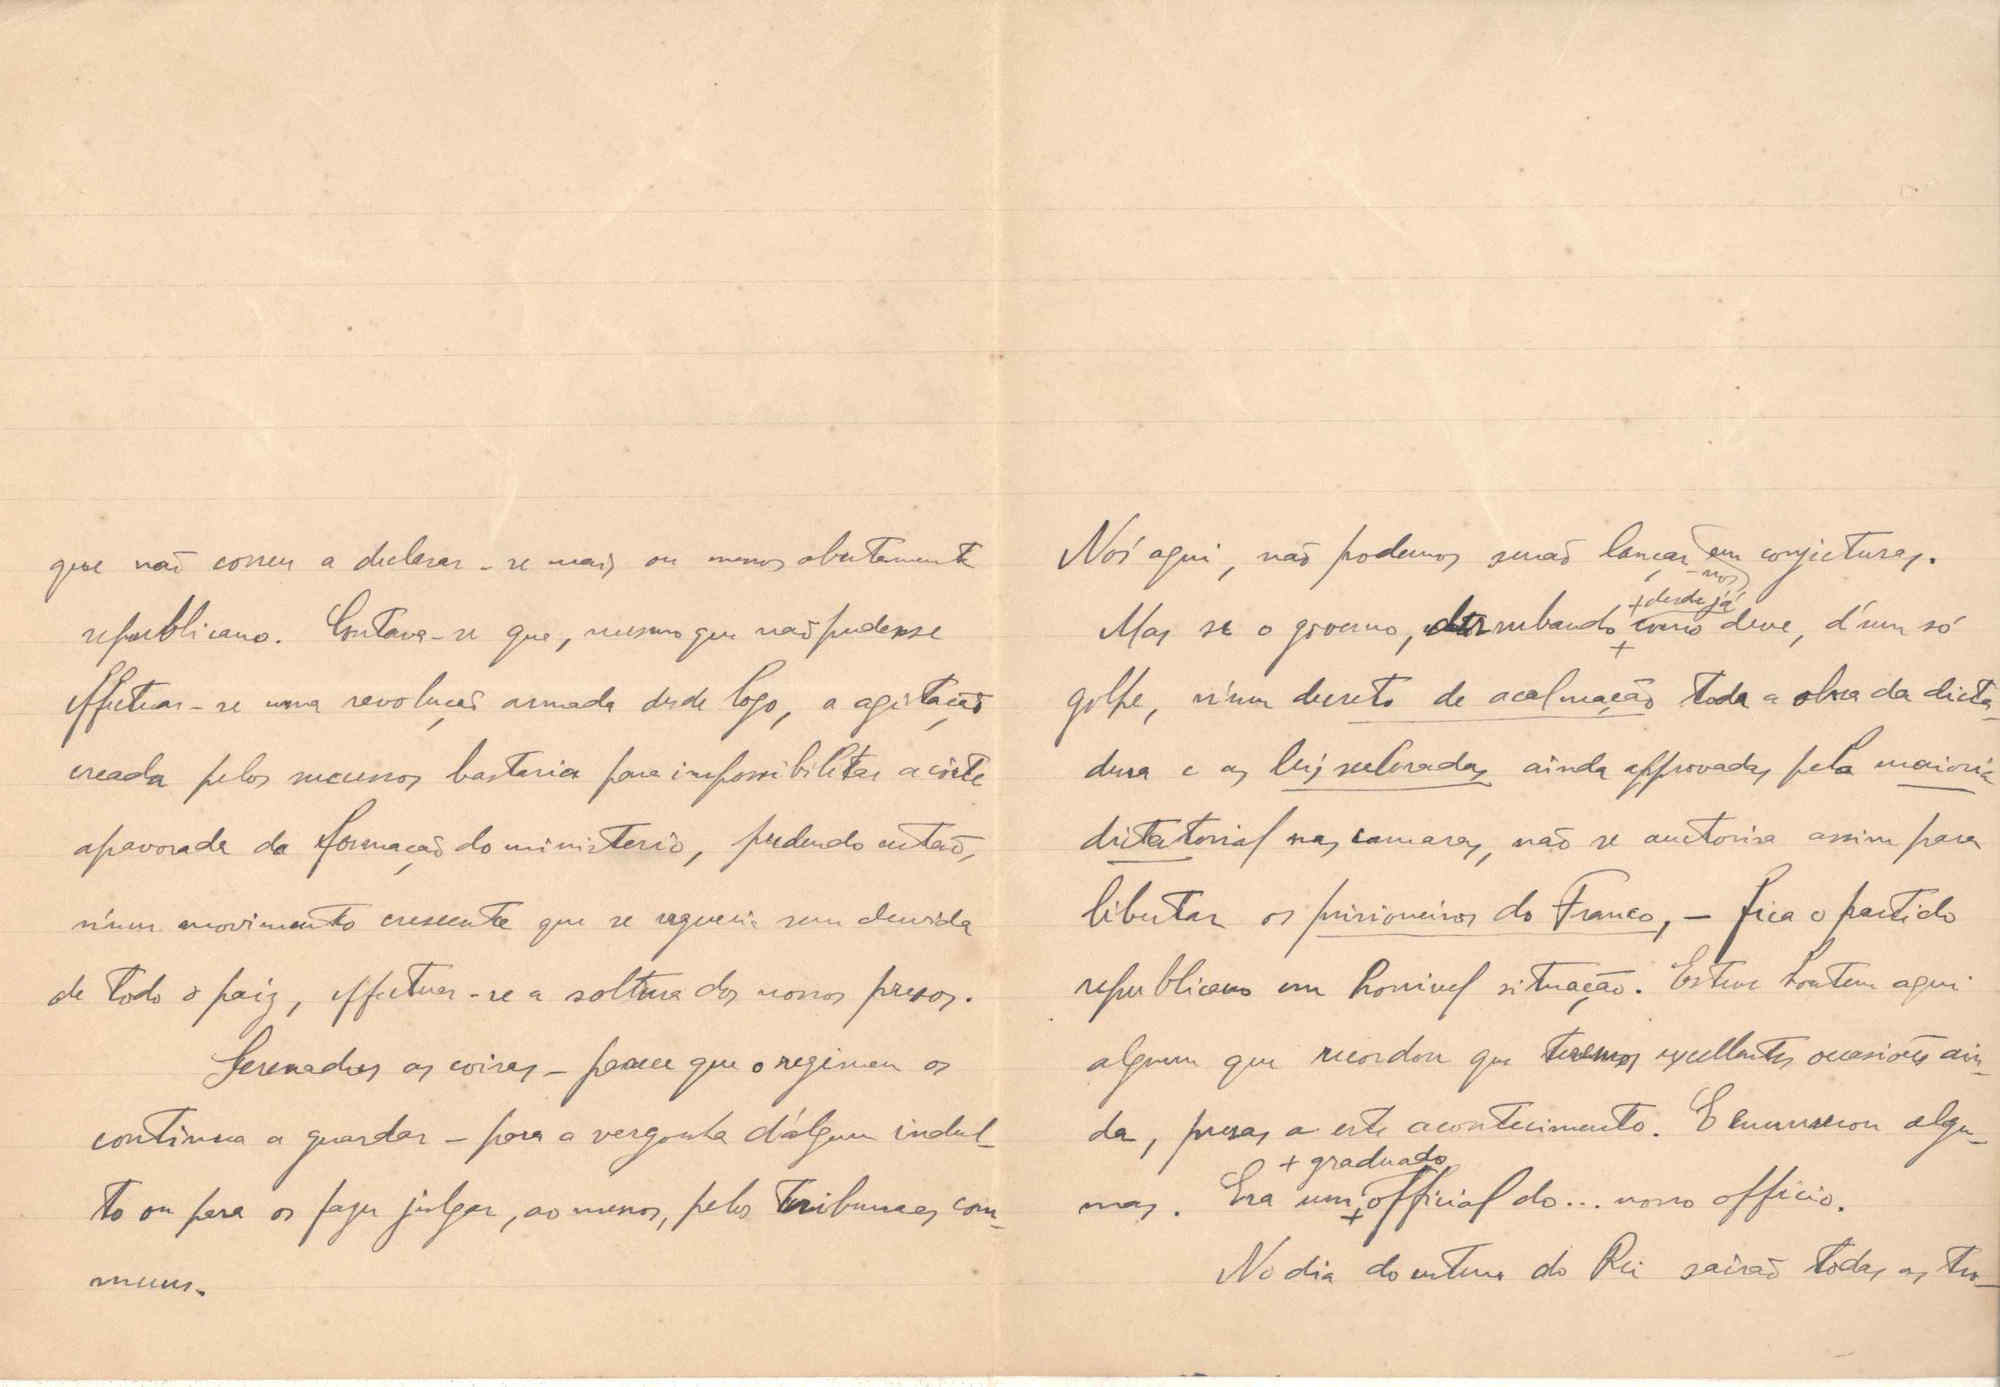 que não correu a declarar-se mais ou menos abertamente
republicano. Contava-se que, mesmo que não pudesse
effetuar-se uma revolução armada desde logo, a agitação
creada pelos sucessos bastaria para impossibilitar a côrte
apavorada da formação do ministerio, podendo então,
n'um movimento crescente que se ergueria sem duvida
de todo o paiz, effetuar-se a soltura dos nossos presos.
Serenadas as coisas – parece que o regimen os
continua a guardar – para a vergonha d'algum indul-
to ou para os fazer julgar, ao menos, pelos tribunaes com-
muns.
Nós aqui, não podemos senão lançar-nos em conjecturas.
Mas se o governo, derrubando + desde já como deve, d'um só
golpe, n'um decreto de acalmação toda a obra da dicta-
dura e as leis celeradas ainda approvadas pela maioria
dictatorial nas camaras, não se auctorisa assim para
libertar os prisioneiros do Franco, – fica o partido
republicano em horrivel situação. Esteve hontem aqui
alguem que recordou que teremos excellentes occasiões ain-
da, presas a este acontecimento. E enumerou algu-
mas. Era um + graduado official do... nosso officio.
No dia do enterro do Rei sairão todas as tro-